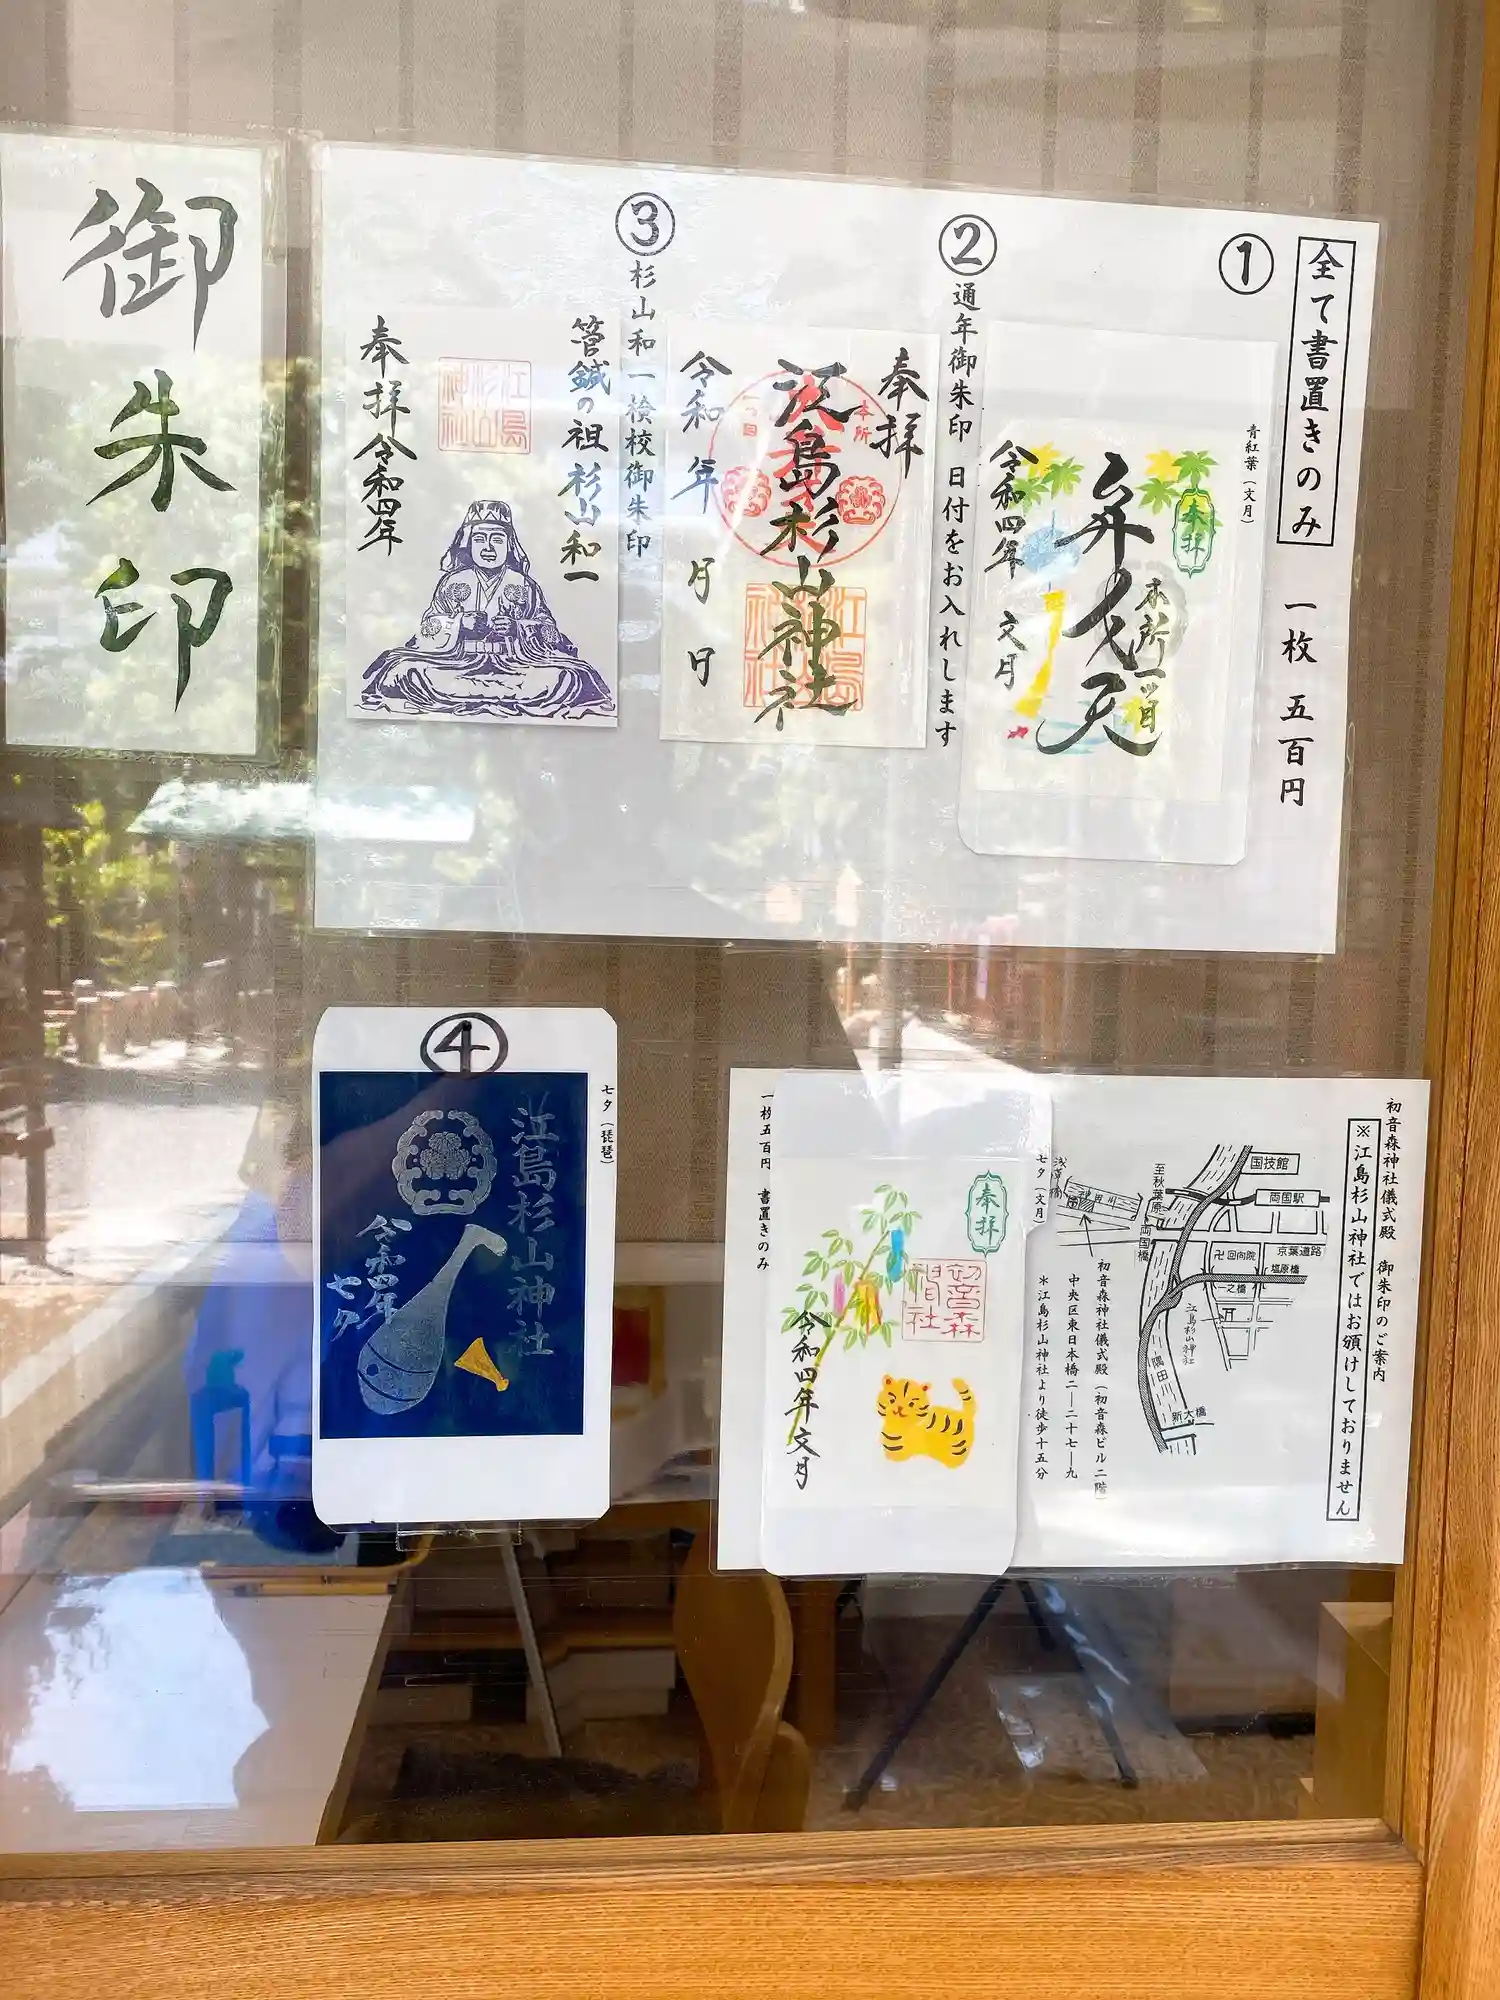 御朱印
全て書置きのみ
一枚 五百円
①
青紅葉(文月)
奉拝
本所一ッ目
弁天
令和四年 文月
②
通年御朱印 日付をお入れします
奉拝
本所
一つ目
江島杉山神社
江島杉山神社
令和 年 月 日
③
杉山和一検校御朱印
管鍼の祖 杉山和一
江島杉山神社
奉拝 令和四年
④
七夕(琵琶)
江島杉山神社
令和四年
七夕
初音森神社儀式殿 御朱印のご案内
※江島杉山神社ではお頒けしておりません
国技館
両国駅
京葉道路
卍回向院
塩原橋
一之橋
江島杉山神社
隅田川
新大橋
至秋葉原
両国橋
神田川
浅草橋
初音森神社儀式殿(初音森ビル二階)
中央区東日本橋二―二十七―九
*江島杉山神社より徒歩十五分
七夕(文月)
奉拝
令和四年文月
一枚五百円 書置きのみ